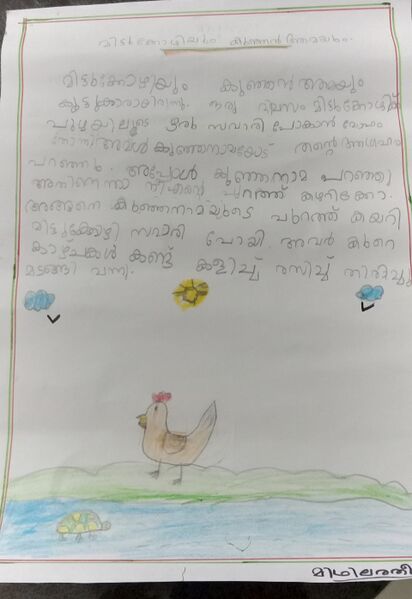 മിടുക്കോഴിയും കുഞ്ഞൻ ആമയും
മിടുക്കോഴിയും കുഞ്ഞൻ ആമയും
കൂട്ടുകാരായിരുന്നു. ഒരു ദിവസം മിടുക്കോഴിക്ക്
പുഴയിലൂടെ ഒരു സവാരി പോകാൻ മോഹം
തോന്നി അവൾ കുഞ്ഞനാമയോട് തന്റെ ആഗ്രഹം
പറഞ്ഞു. അപ്പോൾ കുഞ്ഞനാമ പറഞ്ഞു
അതിനെന്താ നീ എന്റെ പുറത്ത് കയറിക്കോ.
അങ്ങനെ കുഞ്ഞനാമയുടെ പുറത്ത് കയറി
മിടുക്കോഴി സവാരി പോയി. അവർ കുറെ
കാഴ്ചകൾ കണ്ട് കളിച്ച് രസിച്ച് തിരിച്ചു
മടങ്ങി വന്നു.